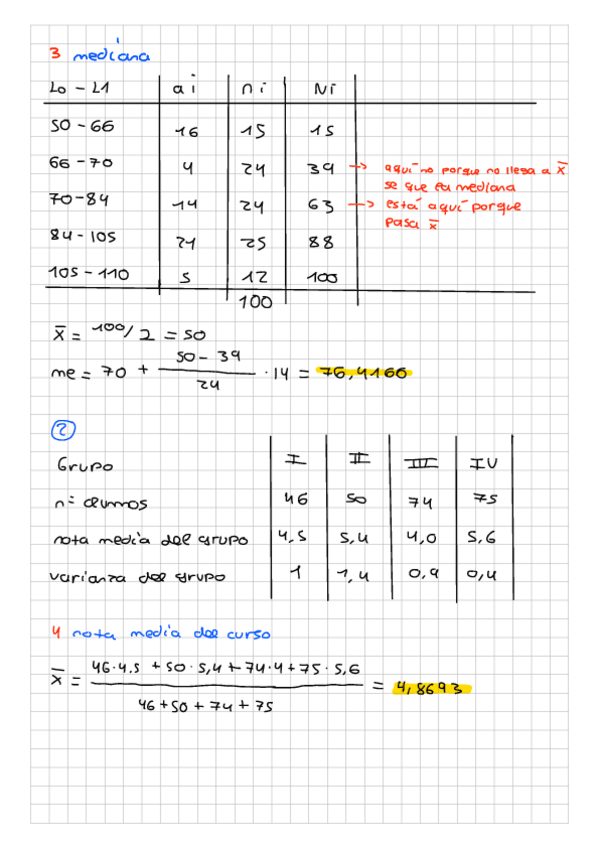 3 mediana
Lo - L1 ai ni Ni
50 - 66 16 15 15
66 - 70 4 24 39 → aquí no porque no llega a x̅
se que la mediana
70 - 84 14 24 63 → está aquí porque
pasa x̅
84 - 105 21 25 88
105 - 110 5 12 100
100
x̅ = 100/2 = 50
me = 70 + (50 - 39)/24 · 14 = 76,4166
2
Grupo I II III IV
nº alumnos 46 50 74 75
nota media del grupo 4,5 5,4 4,0 5,6
varianza del grupo 1 1,4 0,9 0,4
4 nota media del curso
x̅ = (46·4.5 + 50·5,4 + 74·4 + 75·5,6)/(46 + 50 + 74 + 75) = 4,8693